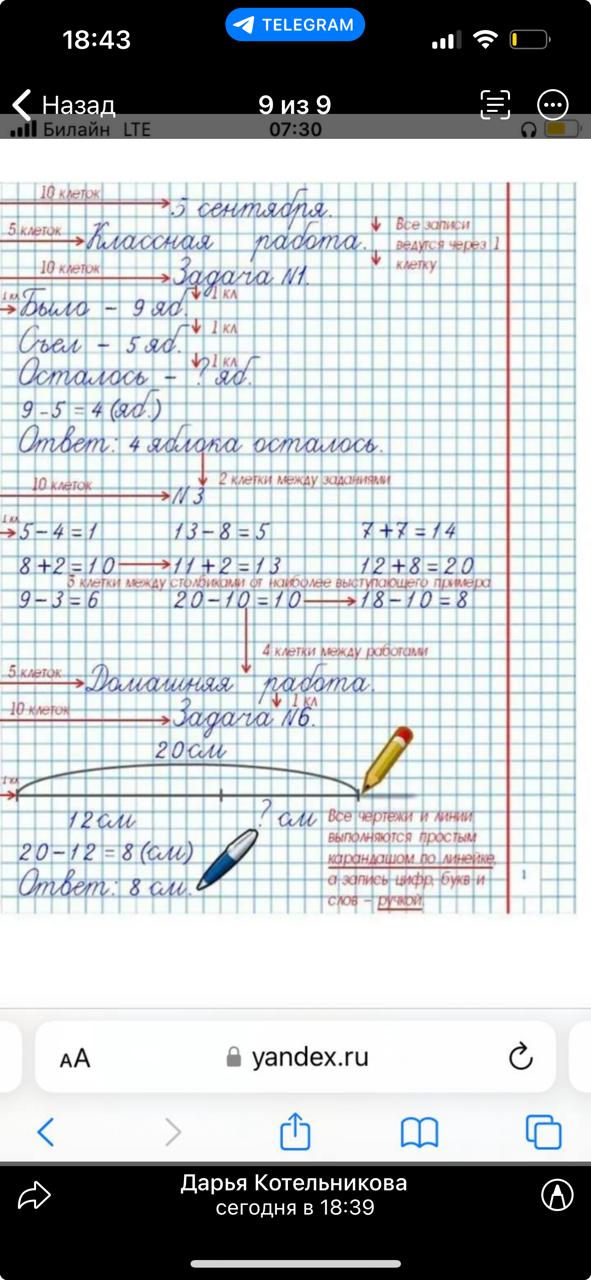 18:43
TELEGRAM
Назад
9 из 9
Билайн LTE
07:30
10 клеток
5 сентября.
5 клеток
Классная работа.
Все записи
ведутся через 1
клетку
10 клеток
Задача №1.
1 кл
1 кл
Было – 9 яб.
1 кл
Съел – 5 яб.
1 кл
Осталось – ? яб.
9 – 5 = 4 (яб.)
Ответ: 4 яблока осталось.
2 клетки между заданиями
10 клеток
№3
1 кл
5 – 4 = 1 13 – 8 = 5 7 + 7 = 14
8 + 2 = 10 11 + 2 = 13 12 + 8 = 20
3 клетки между столбиками от наиболее выступающего примера
9 – 3 = 6 20 – 10 = 10 18 – 10 = 8
4 клетки между работами
5 клеток
Домашняя работа.
1 кл
10 клеток
Задача №6.
20 см
1 кл
12 см ? см
20 – 12 = 8 (см)
Ответ: 8 см.
Все чертежи и линии
выполняются простым
карандашом по линейке,
а запись цифр, букв и
слов – ручкой
1
AA
yandex.ru
Дарья Котельникова
сегодня в 18:39